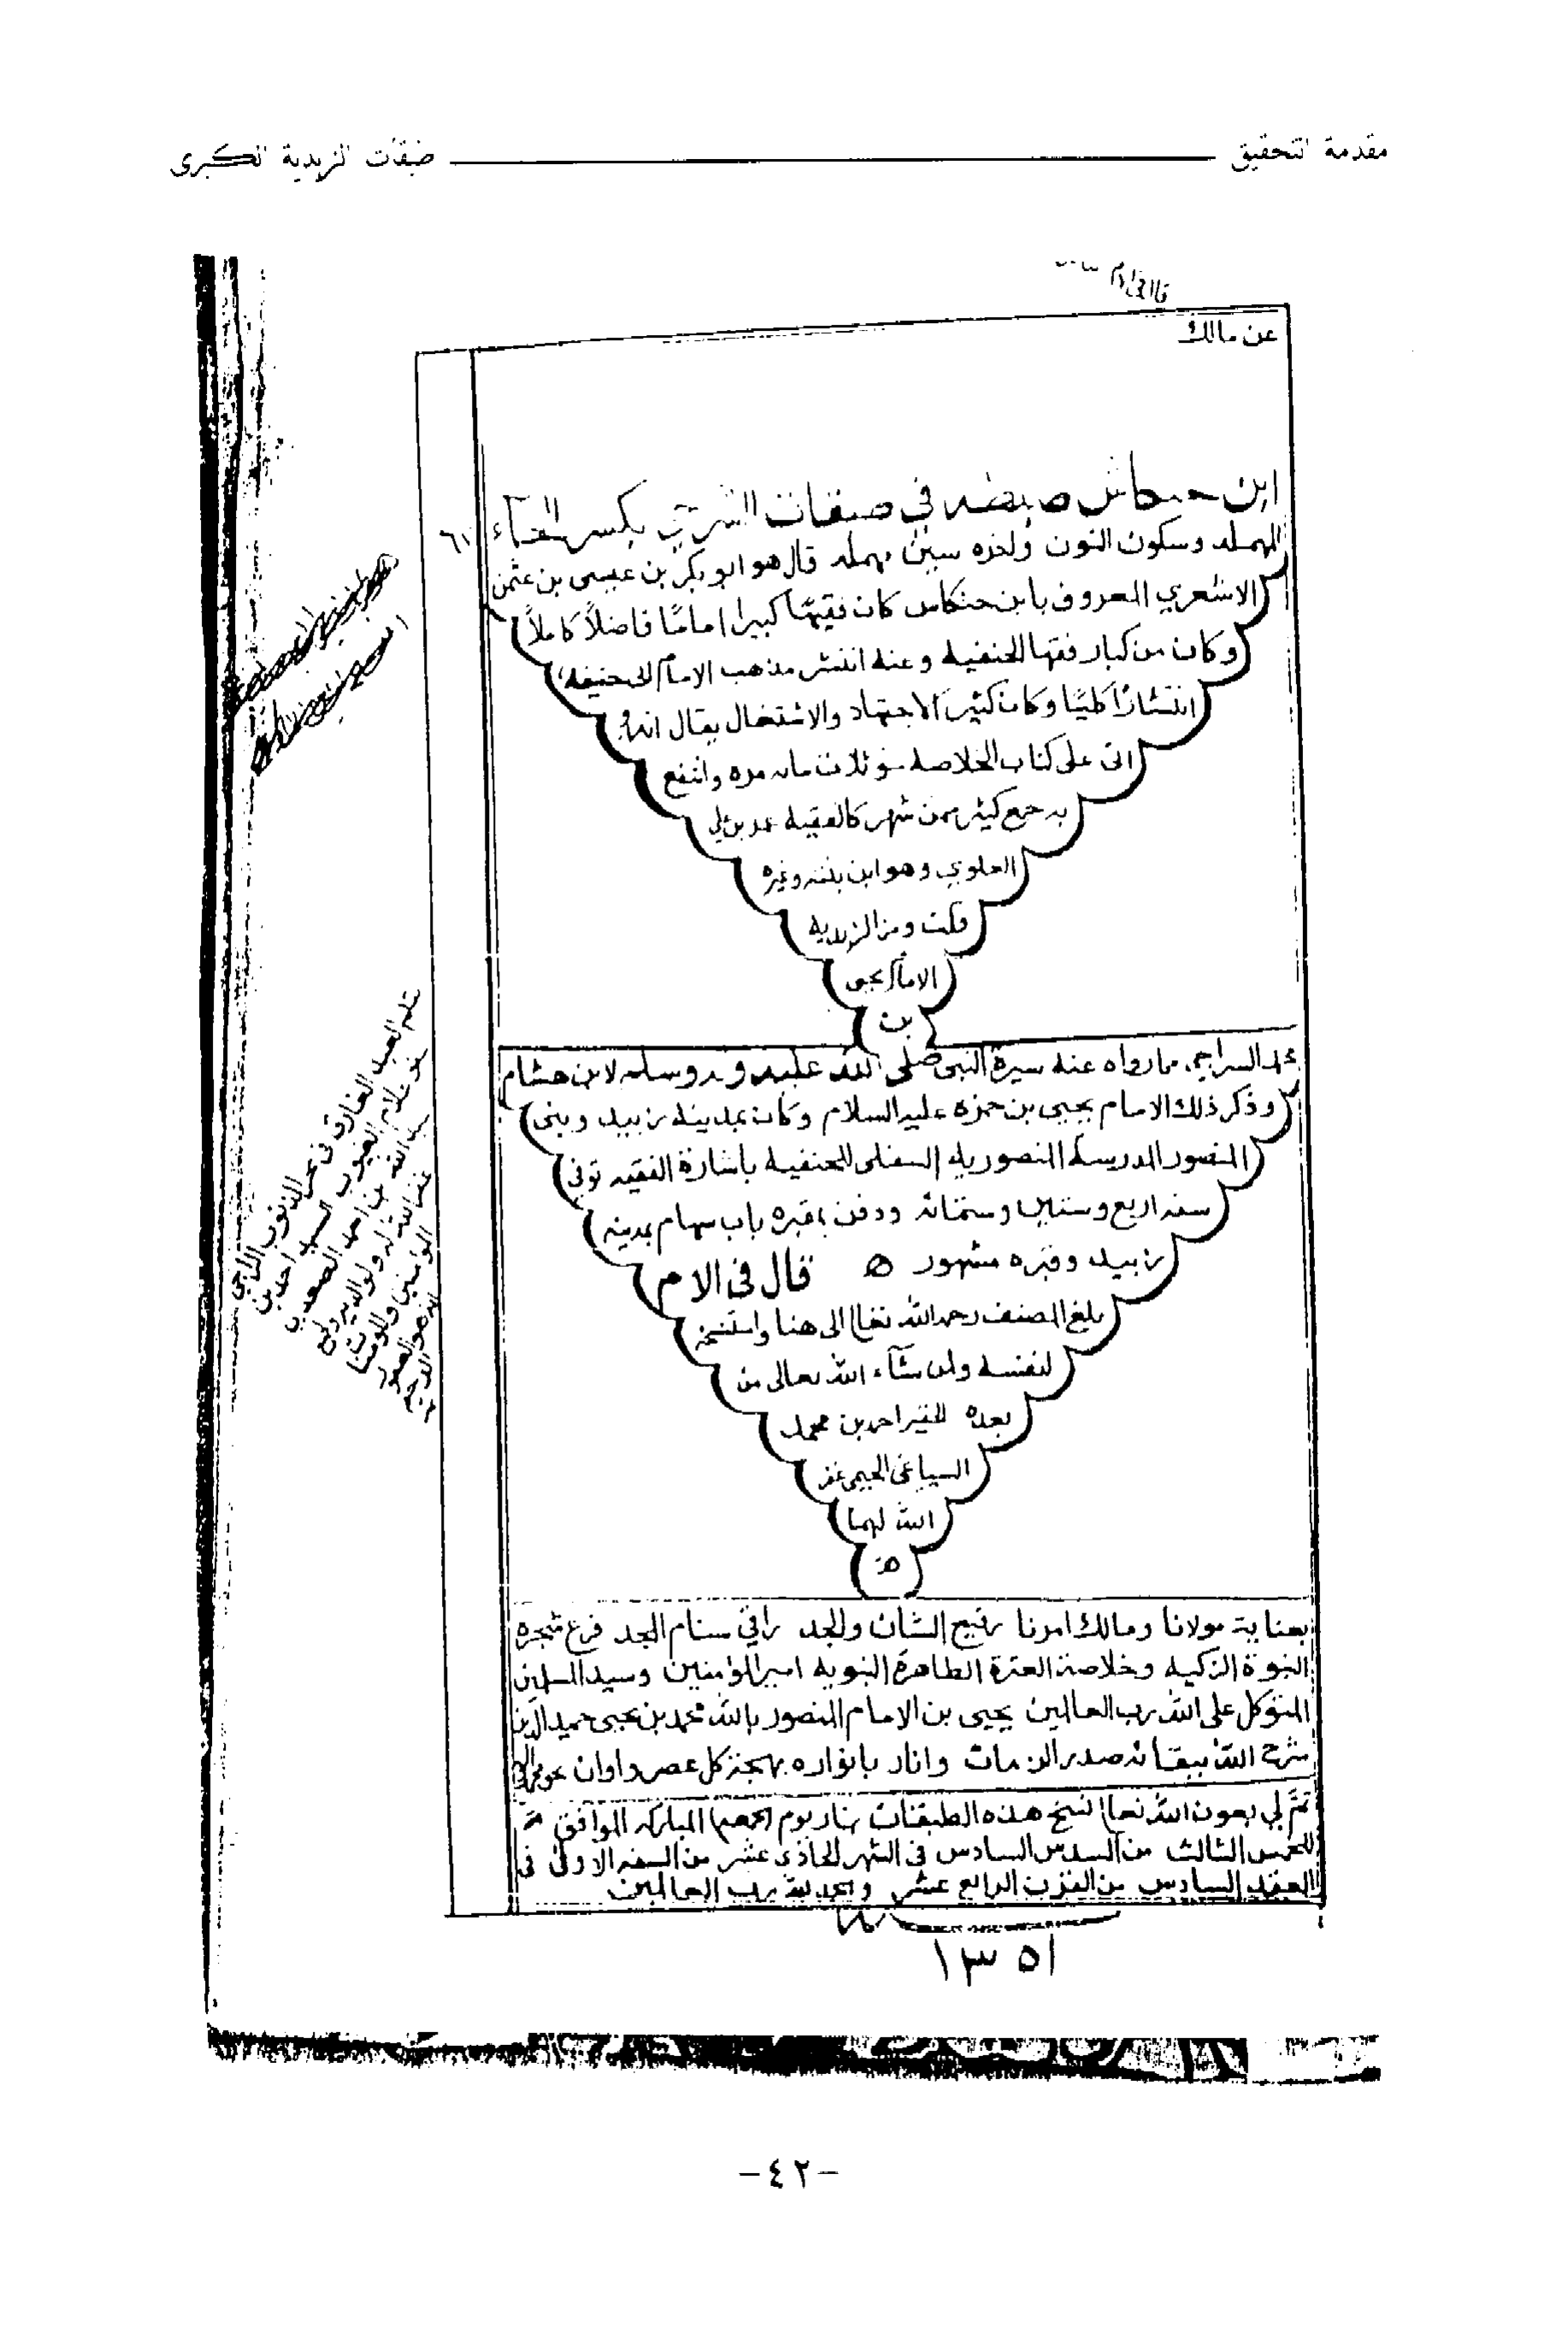 مقدمة التحقيق
طبقات الزيدية الكبرى
عن مالك
ابن حنكاس ضبطه في طبقات الشرجي بكسر الحاء
المهمله وسكون النون واخره سين مهمله قال هو ابو بكر بن عيسى بن عثمن
الاشعري المعروف بابن حنكاس كان فقيهًا كبيرا امامًا فاضلاً كاملاً
وكان من كبار فقها الحنفيه وعنه انتشر مذهب الامام ابي حنيفه
انتشارًا كليًا وكان كثير الاجتهاد والاشتغال يقال انه
اتى على كتاب الخلاصه نحو ثلاث مايه مره وانتفع
به جمع كثير ممن شهر كالفقيه
العلوي وهو ابن بنته وغيره
قلت ومن الزيديه
الامام يحيى
بن
محمد السراجي مما رواه عنه سيرة النبي صلى الله عليه و وسلم لابن هشام
وذكر ذلك الامام يحيى بن حمزه عليه السلام وكان بمدينه زبيد وبنى
المنصور المدرسه المنصوريه السفلى للحنفيه باشارة الفقيه توفي
سنه اربع وستين وستمائه ودفن بمقبره باب سهام بمدينه
زبيد وقبره مشهور ه قال في الام
بلغ المصنف رحمه الله تعالى الى هنا واستنسخه
لنفسه ولمن شآء الله تعالى من
بعده الحقير احمد بن محمد
السياغي الحيمي غفر
الله لهما
ه
بعناية مولانا ومالك امرنا رفيع الشان والجد راقي سنام المجد فرع شجره
النبوة الزكيه وخلاصة العترة الطاهرة النبويه امير المؤمنين وسيد المسلمين
المتوكل على الله رب العالمين يحيى بن الامام المنصور بالله محمد بن يحيى حميد الدين
شرح الله ببقائه صدر الزمان وانار بانواره بهجة كل عصر واوان
تم لي بعون الله تعالى نسخ هذه الطبقات نهار يوم الجمعه المباركه الموافق
للخمس الثالث من السدس السادس في الشهر الحادي عشر من السنه الاولى في
العقد السادس من القرن الرابع عشر والحمد لله رب العالمين
١٣٥١
٦١
بقلم العبد الغارق في بحر الذنوب الراجي
عفو علام الغيوب السيد احمد بن
غفر الله له ولوالديه
المؤمنين والمؤمنات
انه هو الغفور
الرحيم
-٤٢-